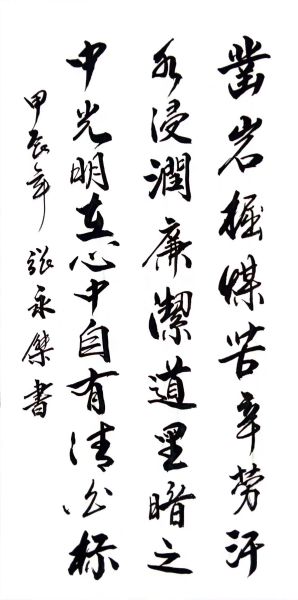 凿岩掘煤苦辛劳汗
水浸潤廉潔道里暗之
中光明在心中自有清公标
甲辰年 張永傑書